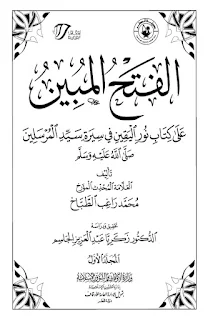 الفتح المبين
على كتاب نور اليقين في سيرة سيد المرسلين
صلى الله عليه وسلم
تأليف
العلامة المحدث المؤرخ
محمد راغب الطباخ
تحقيق ودراسة
الدكتور زكريا عبد العزيز الجاسم
المجلد الأول